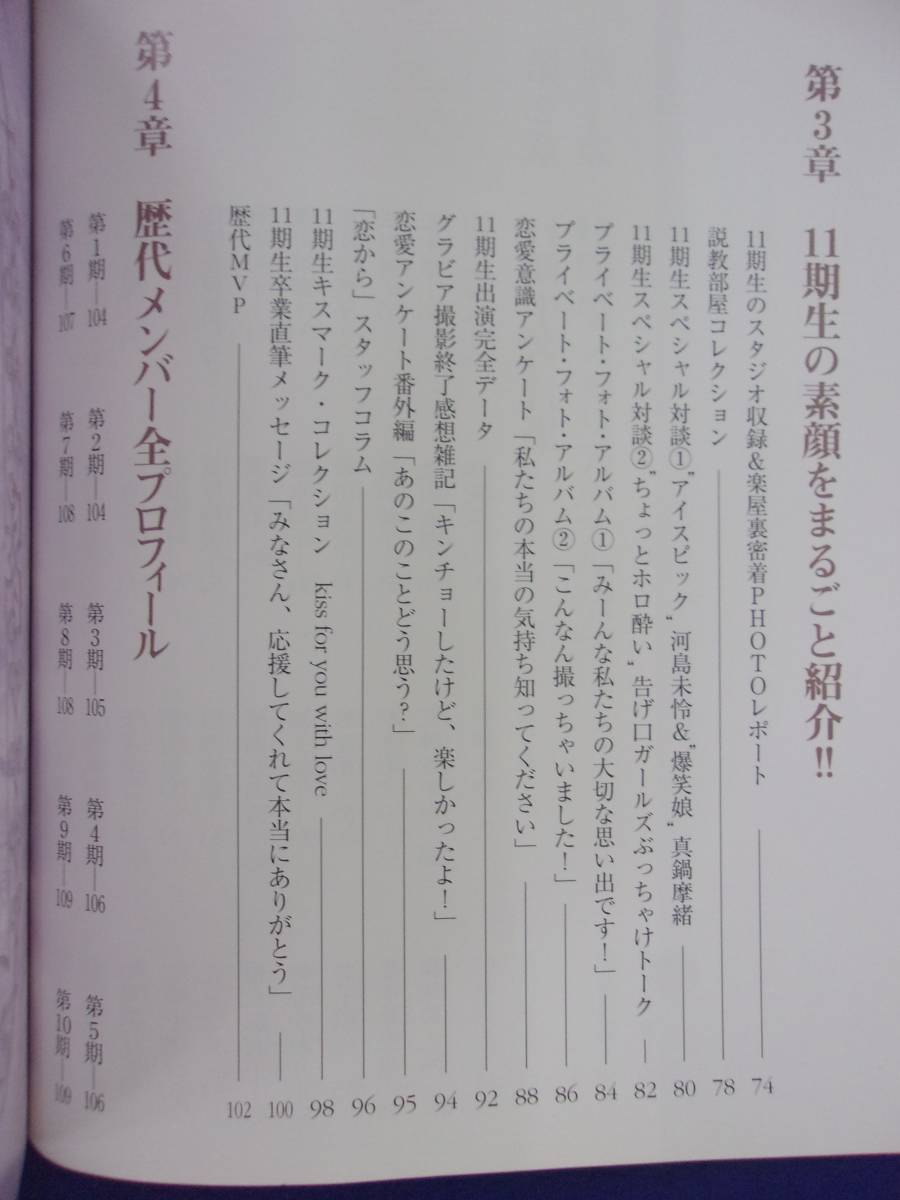 第3章　11期生の素顔をまるごと紹介!!
11期生のスタジオ収録&楽屋裏密着PHOTOレポート 74
説教部屋コレクション 78
11期生スペシャル対談①"アイスピック"河島未怜&"爆笑娘"真鍋摩緒 80
11期生スペシャル対談②"ちょっとホロ酔い"告げ口ガールズぶっちゃけトーク 82
プライベート・フォト・アルバム①「みーんな私たちの大切な思い出です!」 84
プライベート・フォト・アルバム②「こんなん撮っちゃいました!」 86
恋愛意識アンケート「私たちの本当の気持ち知ってください」 88
11期生出演完全データ 92
グラビア撮影終了感想雑記「キンチョーしたけど、楽しかったよ!」 94
恋愛アンケート番外編「あのこのことどう思う?」 95
「恋から」スタッフコラム 96
11期生キスマーク・コレクション　kiss for you with love 98
11期生卒業直筆メッセージ「みなさん、応援してくれて本当にありがとう」 100
歴代MVP 102
第4章　歴代メンバー全プロフィール
第1期—104　第2期—104　第3期—105　第4期—106　第5期—106
第6期—107　第7期—108　第8期—108　第9期—109　第10期—109